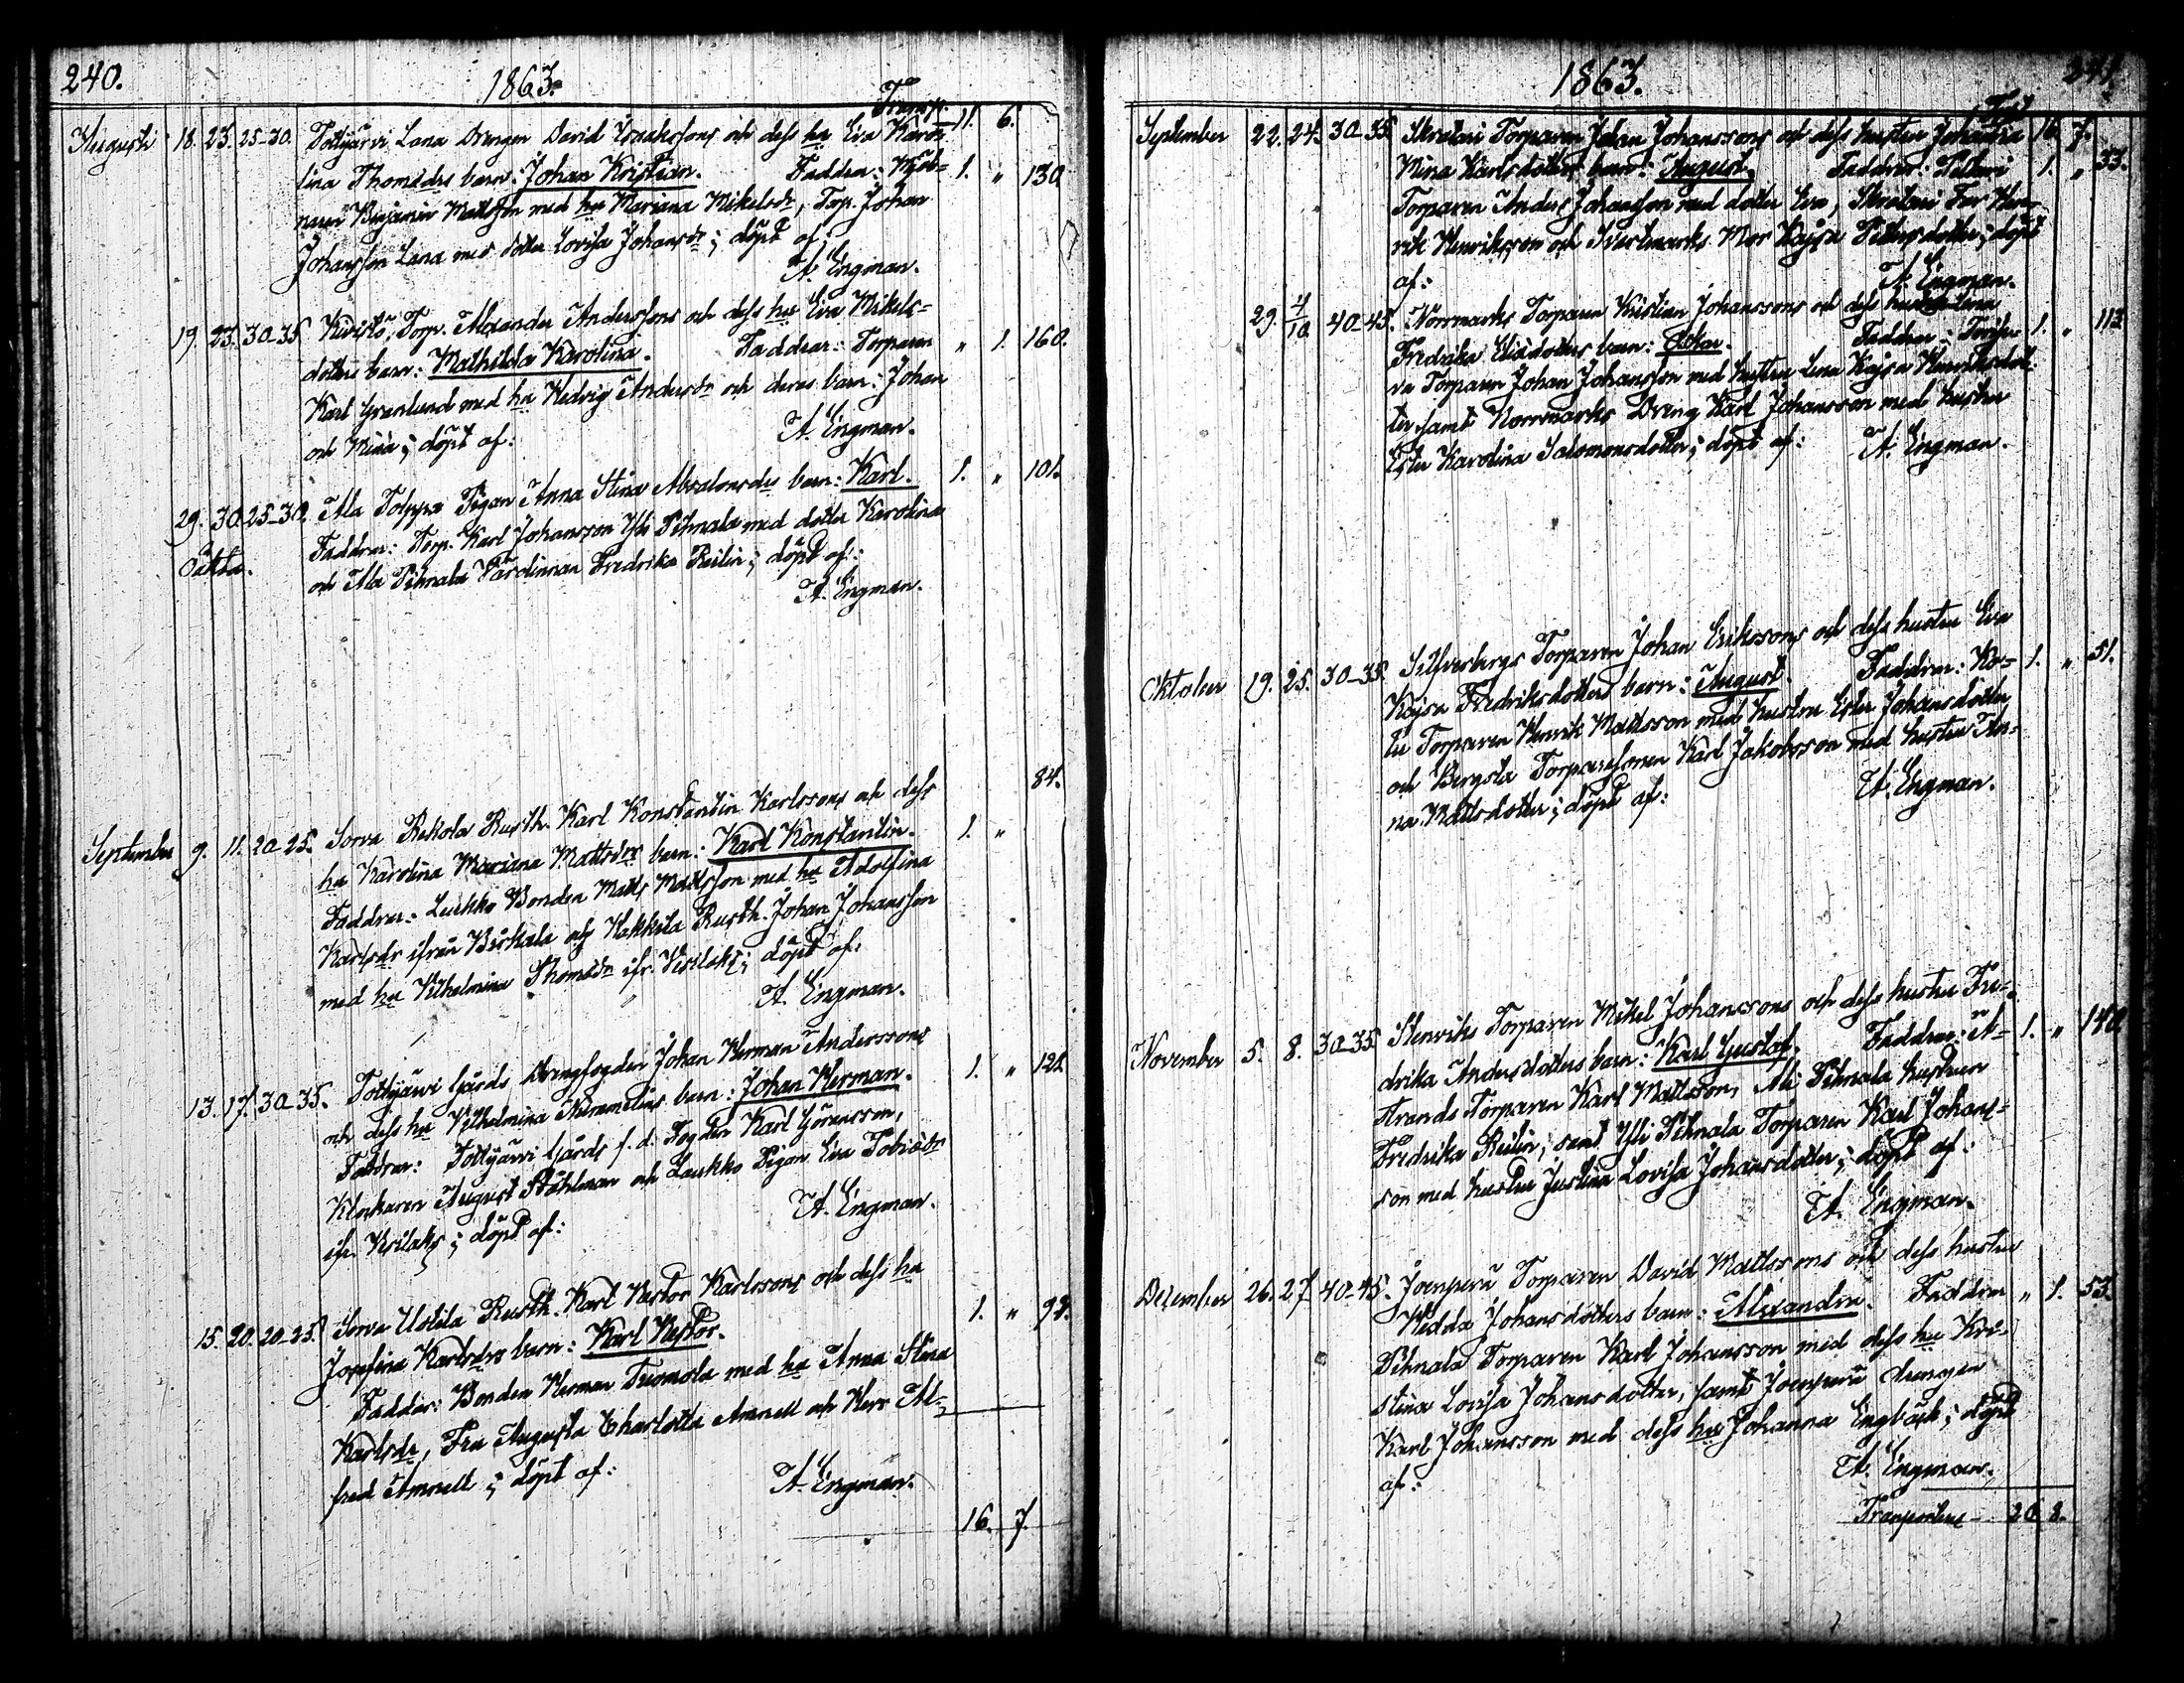 240.
1863.
Transp. 11. 6.
Augusti 18. 23. 25-30. Tottijärvi, Lana Drengen David Isaakssons och dess hu Eva Karo-
lina Thomædrs barn: Johan Kristian. Faddrar: 1. " 130
Benjamin Mattsson med hu Mariana Mikelsdr, Torp. Johan
Johansson Lana med dotter Lovisa Johansdr; döpt af:
A. Engman.
19. 23. 30-35 Kuisto, Torp. Alexander Anderssons och dess hu Eva Mikels-
dotters barn: Mathilda Karolina. Faddrar: Torparen " 1. 160.
Karl Grönlund med hu Hedvig Andersdr och deras barn: Johan
och Mina; döpt af: A. Engman.
29. 30. 25-30. Ala Tolppa Pigan Anna Stina Absalonsdrs barn: Karl. 1. " 101.
Oäkta.
Faddrar: Torp. Karl Johansson Yli Pihnala med dotter Karolina
och Ala Pihnala Värdinnan Fredrika Reilin; döpt af:
A. Engman.
84.
September 9. 11. 20-25. Sorva Rekola Rusth. Karl Konstantin Karlssons och dess
hu Karolina Mariana Mattsdrs barn: Karl Konstantin. 1. "
Faddrar: Laukko Bonden Matts Mattsson med hu Adolfina
Karlsdr ifrån Birkala och Hakkila Rusth. Johan Johansson
med hu Vilhelmina Thomædr ifr. Vesilaks; döpt af:
A. Engman.
13. 17. 30-35. Tottijärvi Gårds Drengfogden Johan Herman Anderssons
och dess hu Vilhelmina Nummelins barn: Johan Herman. 1. " 122
Faddrar: Tottijärvi Gårds f. d. Fogden Karl Göransson,
Klockaren August Ståhlman och Laukko Pigan Eva Tobiædr
ifr. Vesilaks; döpt af: A. Engman.
15. 20. 20-25. Sorva Uotila Rusth. Karl Nestor Karlssons och dess hu
Josefina Karlsdrs barn: Karl Nestor. 1. " 92.
Faddrar: Bonden Herman Tuomola med hu Anna Stina
Karlsdr, Fru Augusta Charlotta Amnell och Herr Al-
fred Amnell; döpt af: A. Engman.
16. 7.
1863.
241.
September 22. 24. 30-35. Skratari Torparen Johan Johanssons och dess hustru Johanna 16. 7.
Mina Karlsdotters barn: August. Faddrar: 1. " 33.
Torparen Anders Johansson med dotter Eva, Skratari Far Hen-
rik Henriksson och Mor Kajsa Pettersdotter; döpt
af: A. Engman.
29. 4/10 40-45. Norrmarks Torparen Kristian Johanssons och dess hustru
Fredrika Eliædotters barn: Faddrar: 1. " 113
Torparen Johan Johansson med hustru Lena Kajsa Henriksdot-
ter, samt Norrmarks Dreng Karl Johansson med hustru
Ester Karolina Salomonsdotter; döpt af: A. Engman.
Oktober 19. 25. 30-35. Silfverbergs Torparen Johan Erikssons och dess hustru Eva
Kajsa Fredriksdotters barn: August. Faddrar: Ko- 1. " 51.
Torparen Henrik Mattsson med hustru Ester Johansdotter
och Bergsta Torparesonen Karl Jakobsson med hustru An-
na Mattsdotter; döpt af: A. Engman.
November 5. 8. 30-35. Henriks Torparen Mikel Johanssons och dess hustru Fre-
drika Andersdotters barn: Karl Gustaf. Faddrar: A- 1. " 140
strands Torparen Karl Mattsson, Ali Pihnala hustrun
Fredrika Reilin, samt Yli Pihnala Torparen Karl Johans-
son med hustru Justina Lovisa Johansdotter; döpt af:
A. Engman.
December 26. 27. 40-45. Joenperü Torparen David Mattssons och dess hustru
Hedda Johansdotters barn: Alexandra. Faddrar " 1. 53.
Pihnala Torparen Karl Johansson med dess hu Kri-
stina Lovisa Johansdotter, samt Joenperü drengen
Karl Johansson med dess hu Johanna Engbäck; döpt
af: A. Engman.
Transporteras 20 8.